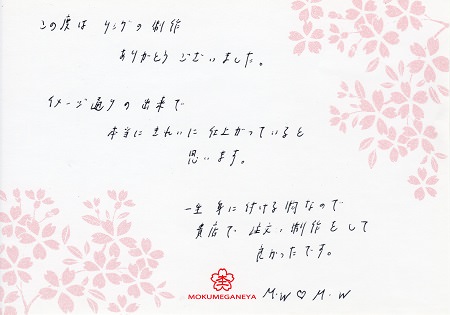 この度は リングの制作
ありがとうございました。
イメージ通りの出来で
本当にきれいに仕上がっていると
思います。
一生 身に付ける物なので
貴店で 注文、制作をして
良かったです。
MOKUMEGANEYA
M.W ♡ M.W